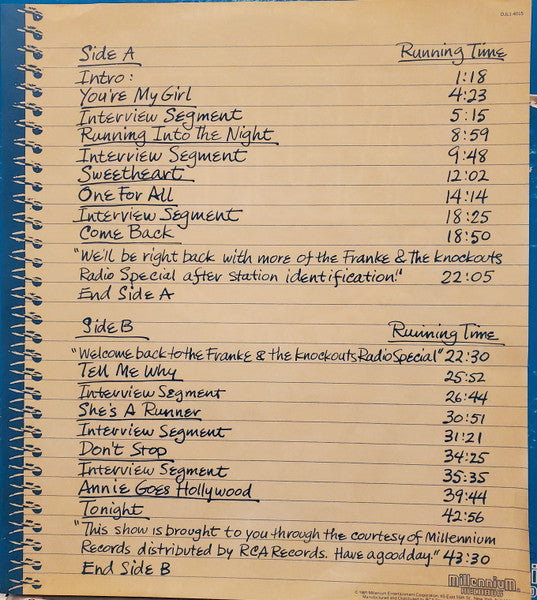 DJL1-4015
Side A Running Time
Intro: 1:18
You're My Girl 4:23
Interview Segment 5:15
Running Into the Night 8:59
Interview Segment 9:48
Sweetheart 12:02
One For All 14:14
Interview Segment 18:25
Come Back 18:50
"We'll be right back with more of the Franke & the Knockouts
Radio Special after station identification!" 22:05
End Side A
Side B Running Time
"Welcome back to the Franke & the Knockouts Radio Special" 22:30
Tell Me Why 25:52
Interview Segment 26:44
She's A Runner 30:51
Interview Segment 31:21
Don't Stop 34:25
Interview Segment 35:35
Annie Goes Hollywood 39:44
Tonight 42:56
"This show is brought to you through the courtesy of Millennium
Records distributed by RCA Records. Have a good day." 43:30
End Side B
millennium
RECORDS
© 1981 Millennium Entertainment Corporation,
Manufactured and Distributed by